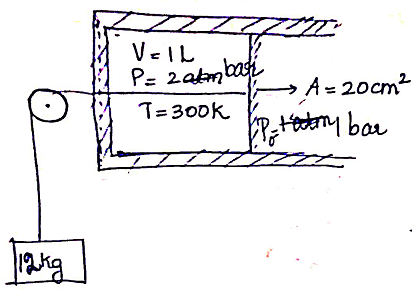 V = 1L
P = 2 bar
T = 300K
A = 20cm²
P₀ = 1 bar
12kg